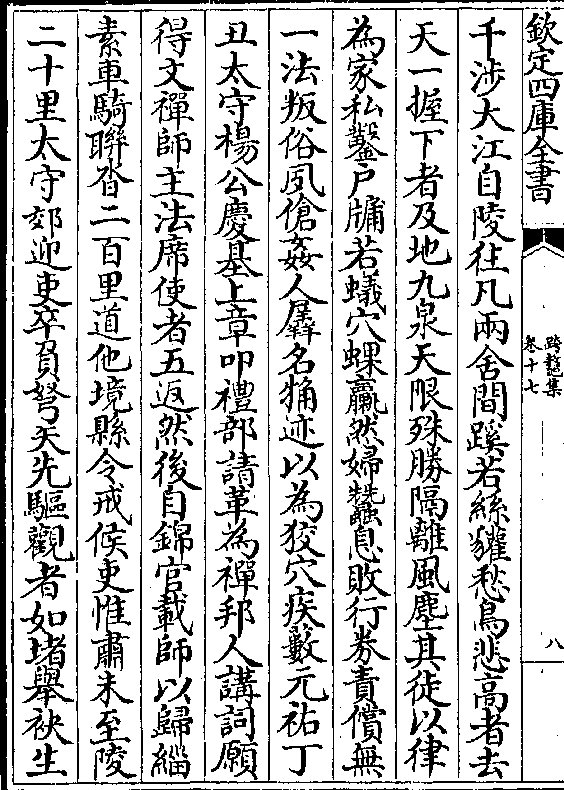 欽定四庫全書
跨鼇集
卷十七
八
千涉大江自陵往凡兩舍間蹊若絲貛愁鳥悲高者去
天一握下者及地九泉天眼殊勝隔離風塵其徒以律
為家私鑿戶牖若蟻穴蜾蠃然婦蠶息敗行券責償無
一法叛俗夙傖姦人孱名桷迹以為狡穴疾藪元祐丁
丑太守楊公慶基上章叩禮部請革為禪邦人講詞願
得文禪師主法席使者五返然後自錦官載師以歸緇
素車騎聯沓二百里道他境縣令戒候吏惟肅未至陵
二十里太守郊迎吏卒負弩矢先驅觀者如堵舉袂生